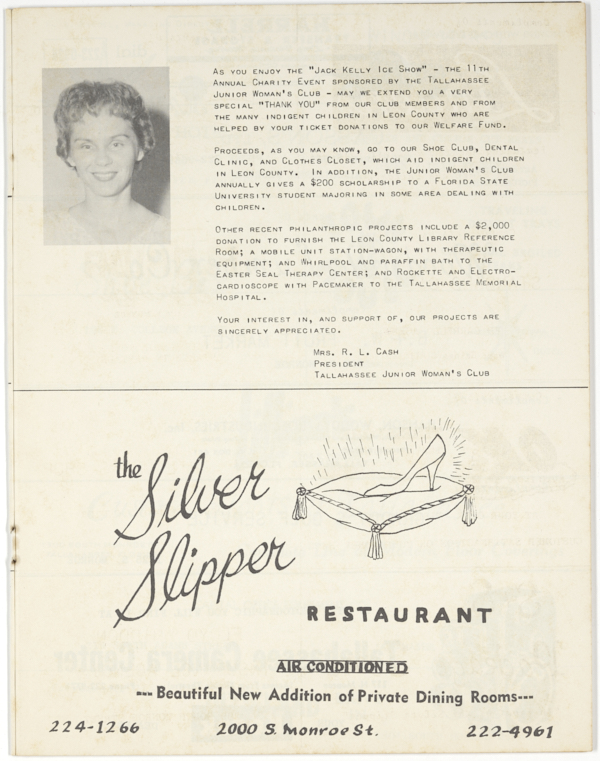 As you enjoy the "Jack Kelly Ice Show" - the 11th
Annual Charity Event sponsored by the Tallahassee
Junior Woman's Club - may we extend you a very
special "THANK YOU" from our club members and from
the many indigent children in Leon County who are
helped by your ticket donations to our Welfare Fund.
Proceeds, as you may know, go to our Shoe Club, Dental
Clinic, and Clothes Closet, which aid indigent children
in Leon County. In addition, the Junior Woman's Club
annually gives a $200 scholarship to a Florida State
University student majoring in some area dealing with
children.
Other recent philanthropic projects include a $2,000
donation to furnish the Leon County Library Reference
Room; a mobile unit station-wagon, with therapeutic
equipment; and Whirlpool and paraffin bath to the
Easter Seal Therapy Center; and Rockette and Electro-
cardioscope with Pacemaker to the Tallahassee Memorial
Hospital.
Your interest in, and support of, our projects are
sincerely appreciated.
Mrs. R. L. Cash
President
Tallahassee Junior Woman's Club
the
Silver
Slipper
RESTAURANT
AIR CONDITIONED
---Beautiful New Addition of Private Dining Rooms---
224-1266 2000 S. Monroe St. 222-4961